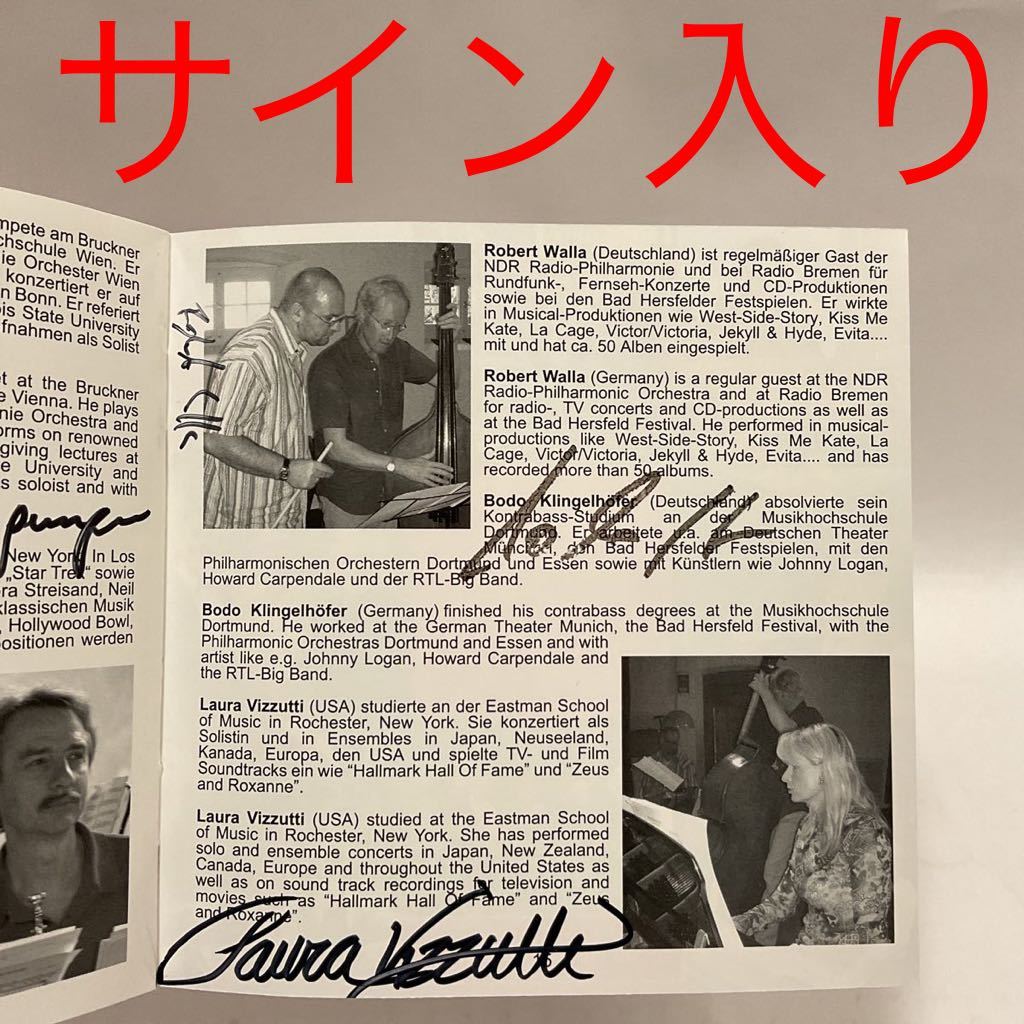 サイン入り
mpete am Bruckner
chschule Wien. Er
ie Orchester Wien
konzertiert er auf
n Bonn. Er referiert
ois State University
fnahmen als Solist
et at the Bruckner
e Vienna. He plays
nie Orchestra and
orms on renowned
giving lectures at
e University and
s soloist and with
New York. In Los
„Star Trek“ sowie
ra Streisand, Neil
klassischen Musik
, Hollywood Bowl,
ositionen werden
Robert Walla (Deutschland) ist regelmäßiger Gast der
NDR Radio-Philharmonie und bei Radio Bremen für
Rundfunk-, Fernseh-Konzerte und CD-Produktionen
sowie bei den Bad Hersfelder Festspielen. Er wirkte
in Musical-Produktionen wie West-Side-Story, Kiss Me
Kate, La Cage, Victor/Victoria, Jekyll & Hyde, Evita....
mit und hat ca. 50 Alben eingespielt.
Robert Walla (Germany) is a regular guest at the NDR
Radio-Philharmonic Orchestra and at Radio Bremen
for radio-, TV concerts and CD-productions as well as
at the Bad Hersfeld Festival. He performed in musical-
productions like West-Side-Story, Kiss Me Kate, La
Cage, Victor/Victoria, Jekyll & Hyde, Evita.... and has
recorded more than 50 albums.
Bodo Klingelhöfer (Deutschland) absolvierte sein
Kontrabass-Studium an der Musikhochschule
Dortmund. Er arbeitete u.a. am Deutschen Theater
München, den Bad Hersfelder Festspielen, mit den
Philharmonischen Orchestern Dortmund und Essen sowie mit Künstlern wie Johnny Logan,
Howard Carpendale und der RTL-Big Band.
Bodo Klingelhöfer (Germany) finished his contrabass degrees at the Musikhochschule
Dortmund. He worked at the German Theater Munich, the Bad Hersfeld Festival, with the
Philharmonic Orchestras Dortmund and Essen and with
artist like e.g. Johnny Logan, Howard Carpendale and
the RTL-Big Band.
Laura Vizzutti (USA) studierte an der Eastman School
of Music in Rochester, New York. Sie konzertiert als
Solistin und in Ensembles in Japan, Neuseeland,
Kanada, Europa, den USA und spielte TV- und Film
Soundtracks ein wie “Hallmark Hall Of Fame” und “Zeus
and Roxanne”.
Laura Vizzutti (USA) studied at the Eastman School
of Music in Rochester, New York. She has performed
solo and ensemble concerts in Japan, New Zealand,
Canada, Europe and throughout the United States as
well as on sound track recordings for television and
movies such as “Hallmark Hall Of Fame” and “Zeus
and Roxanne”.
Laura Vizzutti